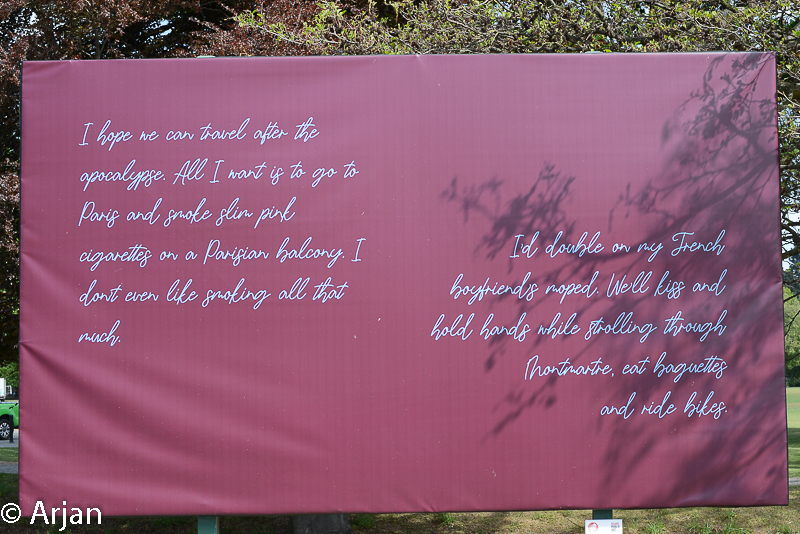 I hope we can travel after the
apocalypse. All I want is to go to
Paris and smoke slim pink
cigarettes on a Parisian balcony. I
don't even like smoking all that
much.
I'd double on my French
boyfriend's moped. We'll kiss and
hold hands while strolling through
Montmartre, eat baguettes
and ride bikes.
© Arjan